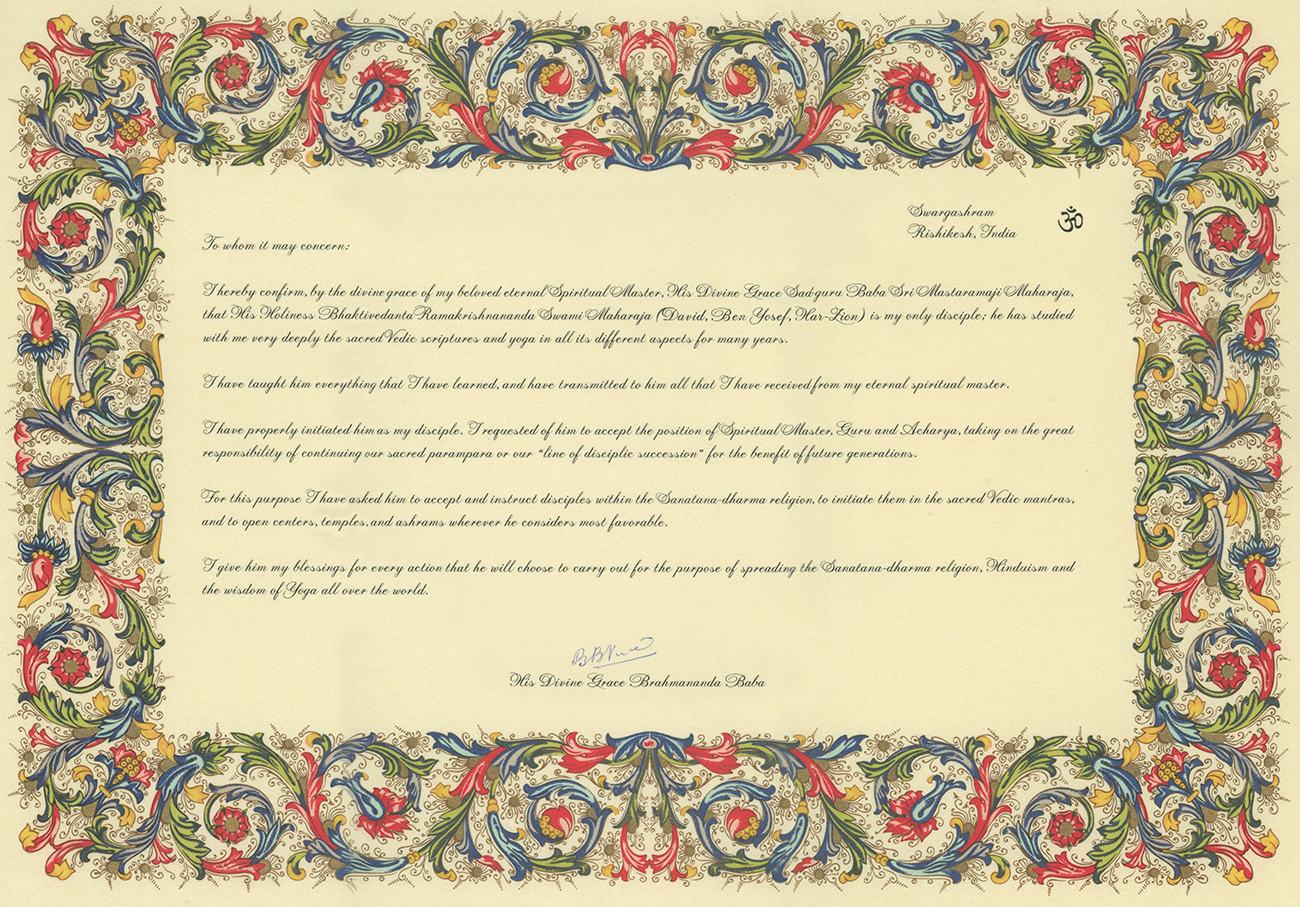 Swargashram
Rishikesh, India
ॐ
To whom it may concern:
I hereby confirm, by the divine grace of my beloved eternal Spiritual Master, His Divine Grace Sad-guru Baba Sri Mastaramaji Maharaja,
that His Holiness Bhaktivedanta Ramakrishnananda Swami Maharaja (David, Ben Yosef, Har-Zion) is my only disciple; he has studied
with me very deeply the sacred Vedic scriptures and yoga in all its different aspects for many years.
I have taught him everything that I have learned, and have transmitted to him all that I have received from my eternal spiritual master.
I have properly initiated him as my disciple. I requested of him to accept the position of Spiritual Master, Guru and Acharya, taking on the great
responsibility of continuing our sacred parampara or our "line of disciplic succession" for the benefit of future generations.
For this purpose I have asked him to accept and instruct disciples within the Sanatana-dharma religion, to initiate them in the sacred Vedic mantras,
and to open centers, temples, and ashrams wherever he considers most favorable.
I give him my blessings for every action that he will choose to carry out for the purpose of spreading the Sanatana-dharma religion, Hinduism and
the wisdom of Yoga all over the world.
His Divine Grace Brahmananda Baba